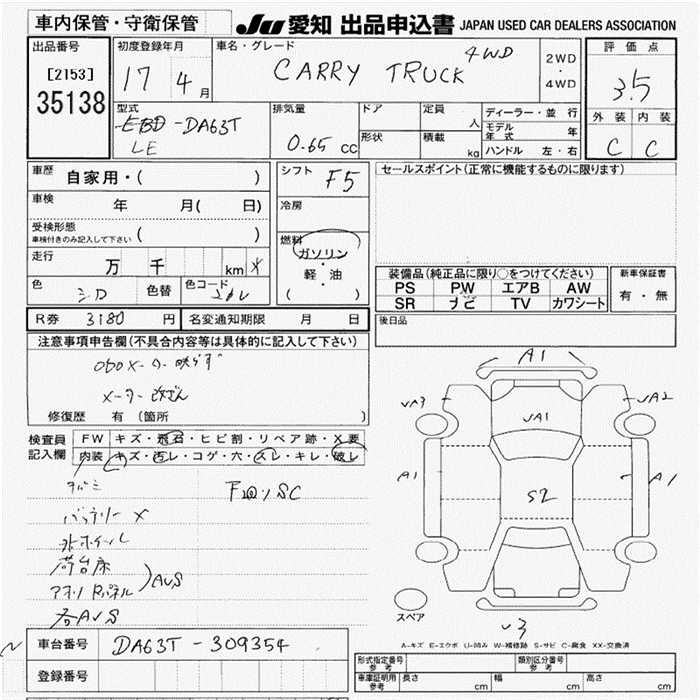 車内保管・守衛保管 JU 愛知 出品申込書 JAPAN USED CAR DEALERS ASSOCIATION
出品番号
[2153]
35138
初度登録年月
17 4月
車名・グレード
CARRY TRUCK 4WD
2WD
・
4WD
評価点
3.5
外装 内装
C C
型式
EBD-DA63T
LE
排気量
0.65 cc
ドア
形状
定員
人
積載
kg
ディーラー・並行
モデル年式 年
ハンドル 左・右
車歴
自家用・( )
車検
年 月( 日)
受検形態
車検付きのみ記入して下さい ( )
走行
万 千 km
色 シロ 色替 色コード 26U
R券 3180 円 名変通知期限 月 日
シフト F5
冷房
燃料
ガソリン
・
軽・油
( )
セールスポイント(正常に機能するものに限ります)
装備品(純正品に限り○をつけてください)
PS PW エアB AW
SR ナビ TV カワシート
新車保証書
有・無
後日品
注意事項申告欄(不具合内容等は具体的に記入して下さい)
メーター改ざん
修復歴 有(箇所 )
検査員
記入欄
FW キズ・飛石・ヒビ割・リペア跡・X要
内装 キズ・汚レ・コゲ・穴・スレ・キレ・破レ
バッテリーX
外ホイール
荷台床
アオリ
AUS
各AUS
下回リSC
A1
A1
A1
UA1
UA2
S2
スペア
A-キズ E-エクボ U-凹み W-補修跡 S-サビ C-腐食 XX-交換済
車台番号 DA63T-309354
登録番号
形式指定番号
参考
類別区分番号
参考
車庫証明用
参考
長さ cm 幅 cm 高さ cm